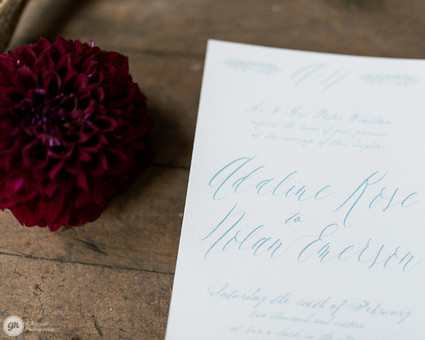 Mr. & Mrs. Peter
request the honor of your presence
at the marriage of their daughter
Adaline Rose
to
Nolan Emerson
Saturday the sixth of February
two thousand and sixteen
at
gn
Photography